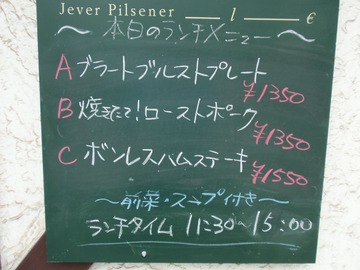 Jever Pilsener ____ l ____ €
～本日のランチメニュー～
A ブラートブルストプレート
¥1350
B 焼きたて!ローストポーク
¥1350
C ボンレスハムステーキ
¥1550
～前菜・スープ付き～
ランチタイム 11:30～15:00